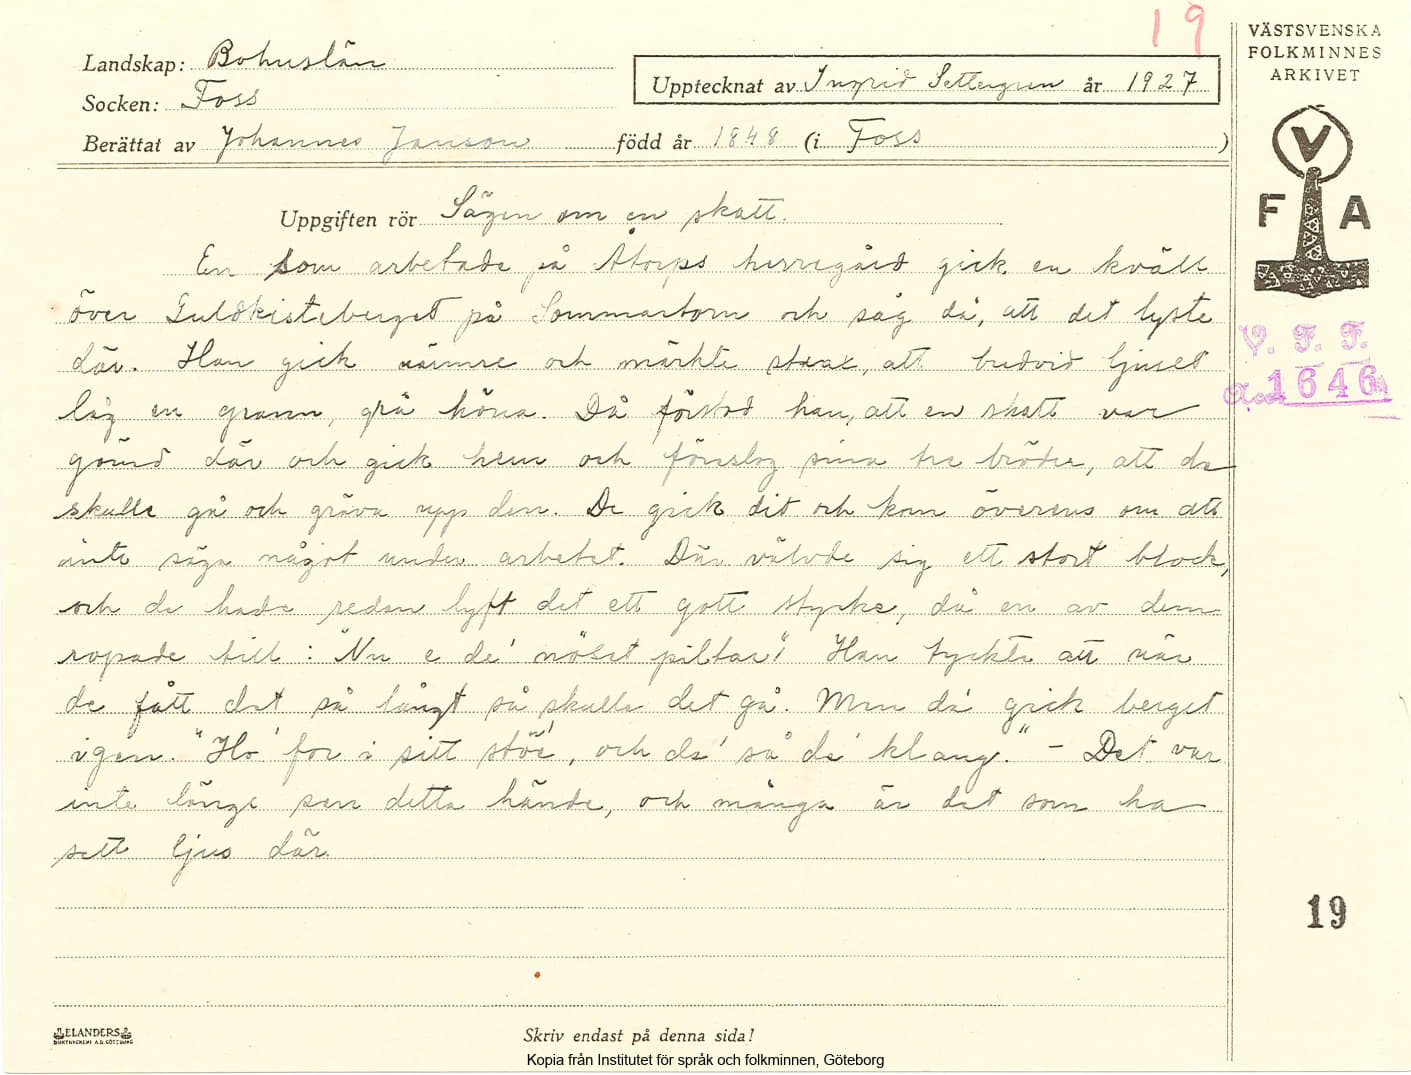 19
VÄSTSVENSKA
FOLKMINNES
ARKIVET
Landskap: Bohuslän
Socken: Foss
Upptecknat av Ingrid Settergren år 1927
Berättat av Johannes Janson född år 1848 (i Foss )
V
F A
Uppgiften rör Sägen om en skatt.
En som arbetade på Åtorps herregård gick en kväll
över Guldkisteberget på Sommartorn och såg då, att det lyste
där. Han gick närmre och märkte strax, att bredvid ljuset
låg en grann, grå höna. Då förstod han, att en skatt var
gömd där och gick hem och förreslog sina tre bröder, att de
skulle gå och gräva upp den. De gick dit och kom överens om att
inte säga något under arbetet. Där välvde sig ett stort block,
och de hade redan lyft det ett gott stycke, då en av dem
ropade till: "Nu e de' nöset piltar!" Han tyckte att när
de fått det så långt så skulle det gå. Men då gick berget
igen. "Ho' for i sitt stöe', och de' så de' klang." – Det var
inte länge sen detta hände, och många är det som ha
sett ljus där.
V. F. F.
Acc 1646
19
ELANDERS
BOKTRYCKERI A.B. GÖTEBORG
Skriv endast på denna sida!
Kopia från Institutet för språk och folkminnen, Göteborg